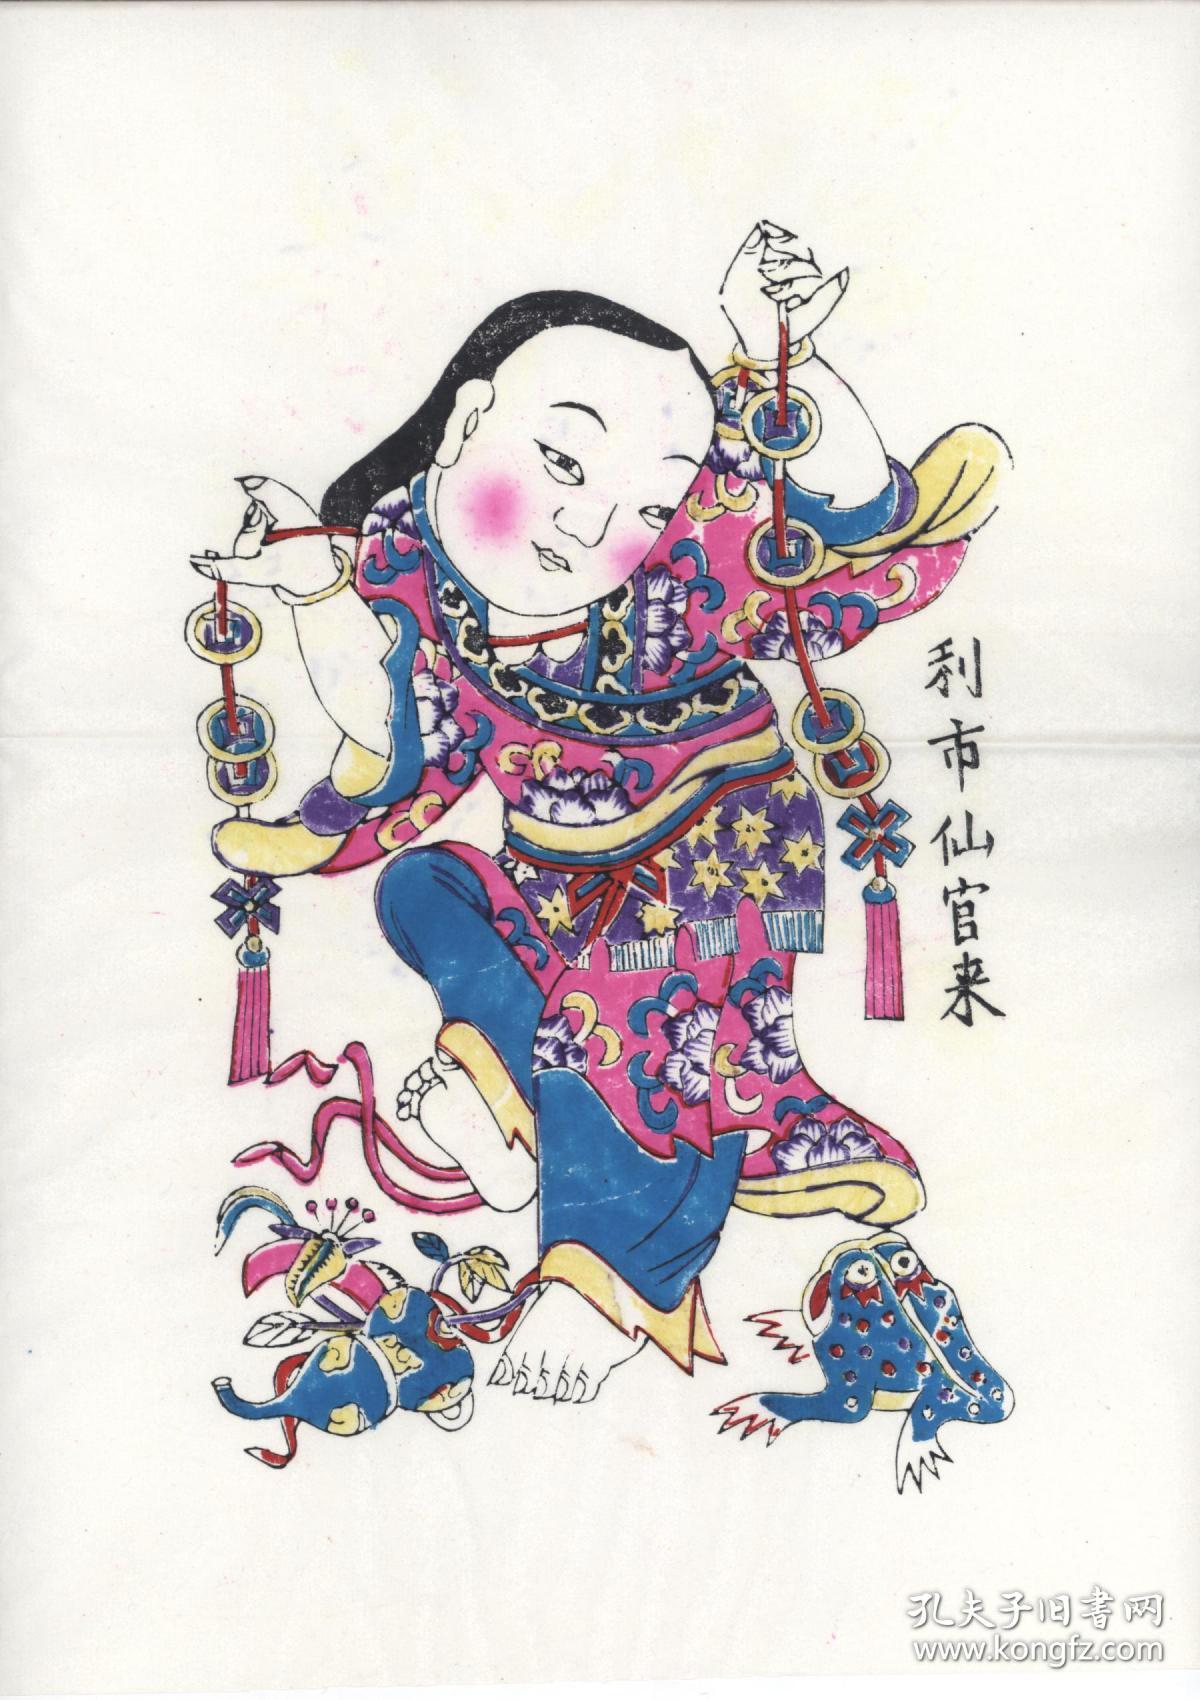 利市仙官来
孔夫子旧書网
www.kongfz.com